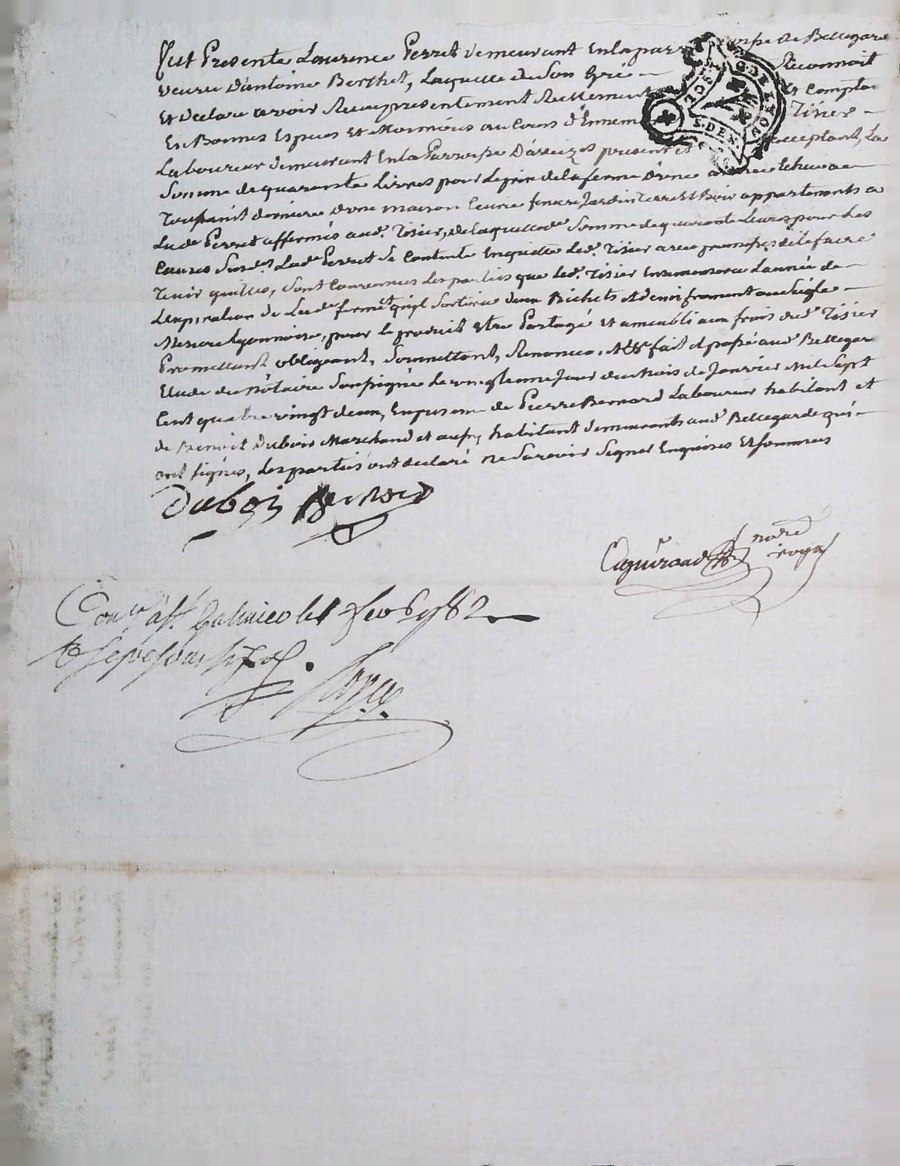 fut Presente Laurence Perret demeurant En la par sse de Bellegarde
veuve d'antoine Berthet, Laquelle de Son Gré Reconnoit
Et declare avoir Recu presentement Reellement Et Compta
En Bonnes Especes et Monnoies au Cours d'Ennem Tisier
Laboureur demeurant En la Parroisse D'aveizes present et acceptant, La
Somme de quarante Livres pour Le prix de la ferme d'une année échue a
Toussaint derniere d'une maison Curie feniere Jardin Terre Et Bois appartenants a
Lad.e Perret affermés aud.t Tisier, de laquelle d.e Somme de quarante Livres pour Les
Causes Susd.es Lad.e Perret Se Contente En quitte led.t Tisier avec promesse de le faire
Tenir quitte, Sont Convenues Les parties que led.t Tisier Ensemencera L'année de
L'expiration de Lad.e ferme deux Bichets et demi froment ou Seigle
Mesure Lyonnoise, pour le produit etre Partagé et aux frais dud.t Tisier
Promettant, obligeant, Soumettant, Renonce, &c. fait et passé aud.t Bellegarde
Etude du Notaire Soussignée Le vingt jour du Mois de Janvier Mil Sept
Cent quatre vingt deux, En presence de Pierre Bernard Laboureur habitant et
de Benoit Dubois Marchand et habitant demeurants aud.t Bellegarde qui
ont Signés, Les parties ont declaré ne Savoir Signer Enquises Et Sommées
Duboi Bernard
no.re
royal
Con.lé a S.t Galmier le 1 feb 1782